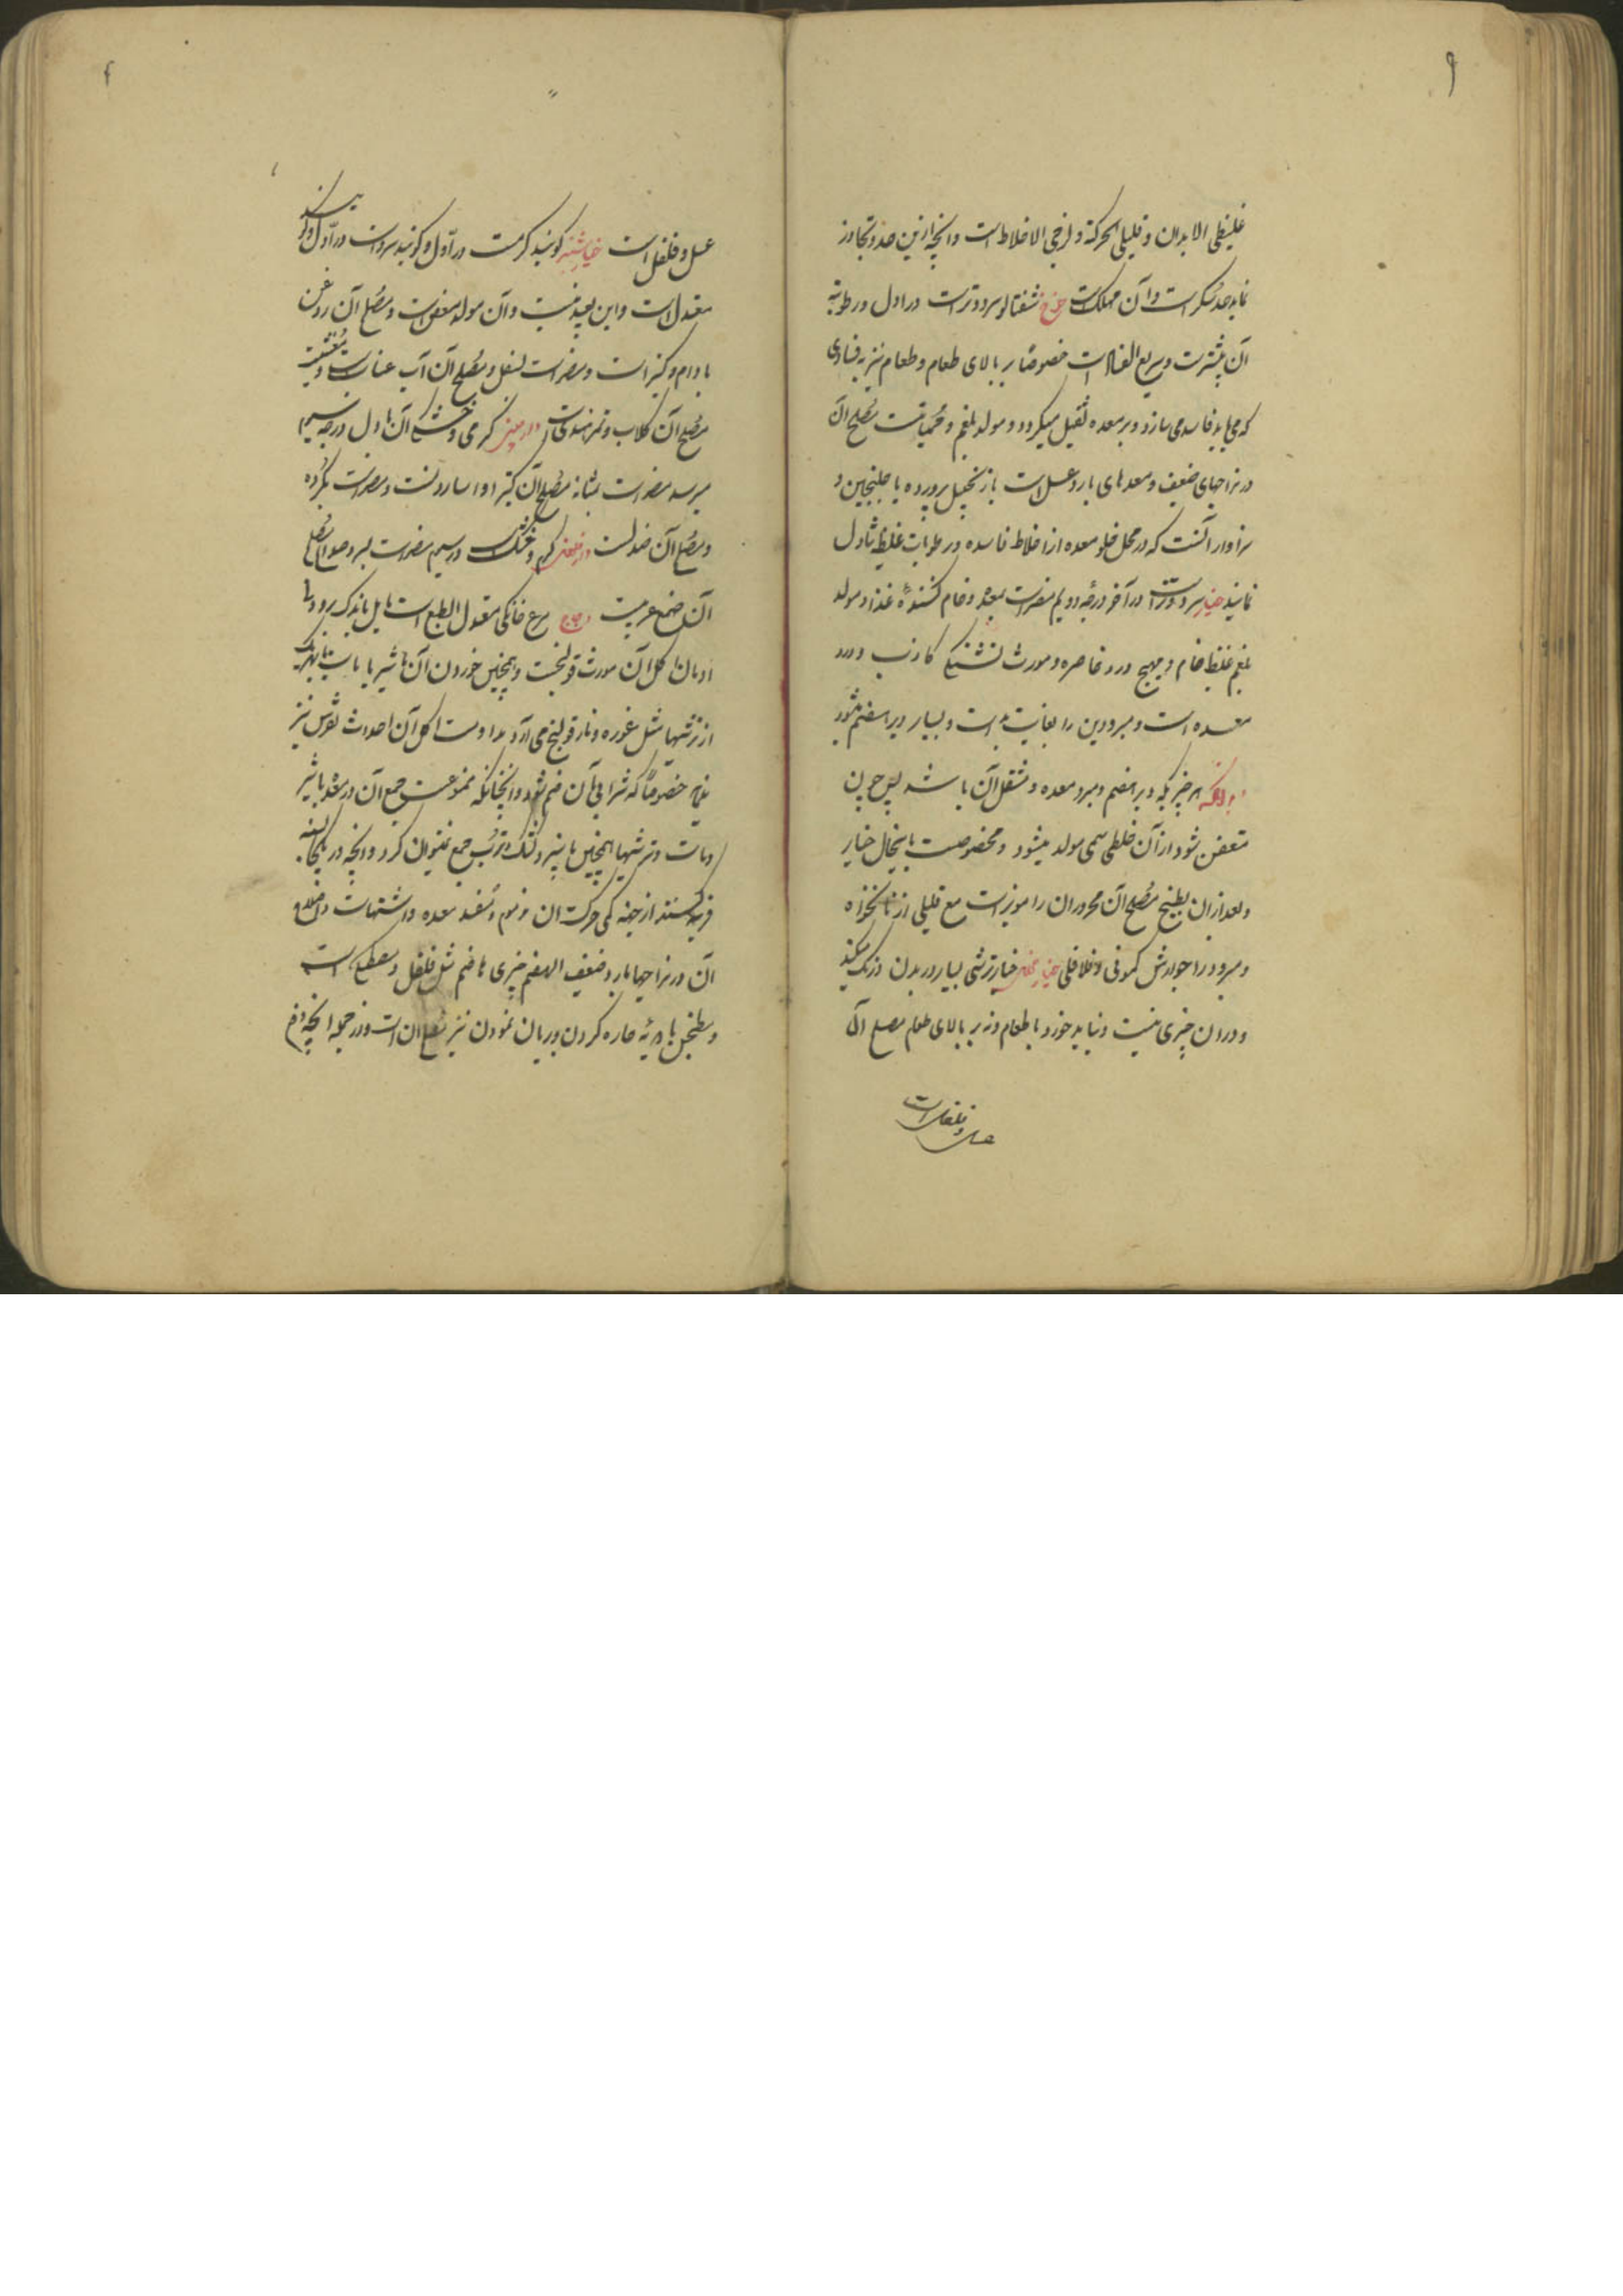 غلیظی الابدان و قلیلی الحرکة و لزجی الاخلاط است و انچه ازین حد و تجاوز
نماید حد سکر است و آن مهلک است خوخ شفتالو سرد و تر است در اول و رطوبة
آن بیشتر است و سریع الفساد است خصوصًا بر بالای طعام و طعام نیز به فسادی
که می یابد فاسد می سازد و بر معده ثقیل میکردد و مولد بلغم و حمیات است مُصلح آن
در مزاجهای ضعیف و معدهای بارد عسل است با زنجبیل پرورده یا جلنجبین و
سزاوار آنست که در محل خلو معده از اخلاط فاسده و رطوبات غلیظه تناول
نمایند خیار سرد و تر است در آخر درجه دویم مضر است بمعده و خام کنندهٔ غذا و مولد
بلغم غلیظ خام و مهیج درد خاصره و مورث تشنکی کاذب و درد
معده است و مبرودین را بغایت بد است و بسیار دیر هضم میشود
هر چیز یکه دیر هضم و مبرد معده و مثقل آن باشد پس چون
متعفن شود از آن خلطی سمی مولد میشود و مخصوصست باینحال خیار
و بعد از ان بطیخ مُصلح آن محروران را مویز است مع قلیلی از نانخواه
و مبرود را جوارش کمونی و فلافلی خیار ترشی بسیار در بدن درنک میکند
و در ان چیزی نیست و نباید خورد با طعام و نه بر بالای طعام مصلح آن
عسل و فلفل است
عسل و فلفل است خیارشنبر کویند کرمست در اول و کویند سرد است در اول و
معتدل است و این بعید نیست و آن مولد مغص است و مصلح آن روغن
بادام و کتیرا است و مضر است بسفل و مُصلح آن آب عناب است و
مُصلح آن کلاب و تمر هندیست دارچینی کرمی و خشکی آن باول درجه سیم
میرسد مضر است بمثانه مُصلح آن کتیرا و اسارونست و مضر است بکرده
و مصلح آن صندلست دارفلفل کرم و خشک است در سیم مضر است بسر و صداع مُصلح
آن صمغ عربیست دجاج مرغ خانکی معتدل الطبع است مایل باندک برودتی
ادمان اکل آن مورث قولنجست و همچنین خوردن آن با شیر یا ماست
از ترشیها مثل غوره و نار قولنج می آرد مداومت اکل آن احداث نقرس نیز
خصوصًا که شرابی بآن ضم شود و انچنانکه ممنوعست جمع آن در معده با شیر
و ماست و ترشیها همچنین با پنیر و تُرب جمع نمیتوان کرد و انچه در یکجا بسته
فربه کنند از جهة کمی حرکت ان مذموم و مُفسد معده و اشتهاست و اصلاح
آن در مزاجها بارد ضعیف الهضم چیزی هاضم مثل فلفل و مصطکی است
و مطنجن با ادویه حاره کردن و بریان نمودن نیز مُصلح ان است و در جمله انچه